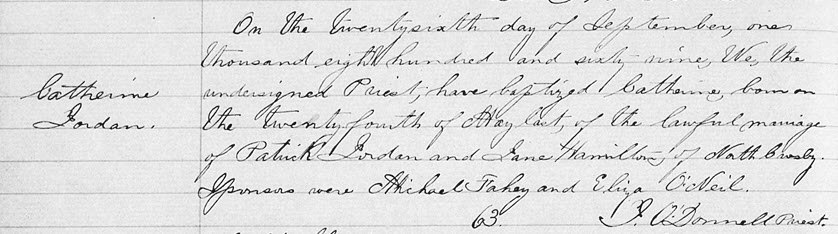 On the twentysixth day of September, one
thousand eight hundred and sixty nine, We, the
Catherine
undersigned Priest, have baptized Catherine, born on
Jordan.
the twenty fourth of May last, of the lawful marriage
of Patrick Jordan and Jane Hamilton, of North Crosby.
Sponsors were Michael Fahey and Eliza O'Neil.
63. J. O'Donnell Priest.